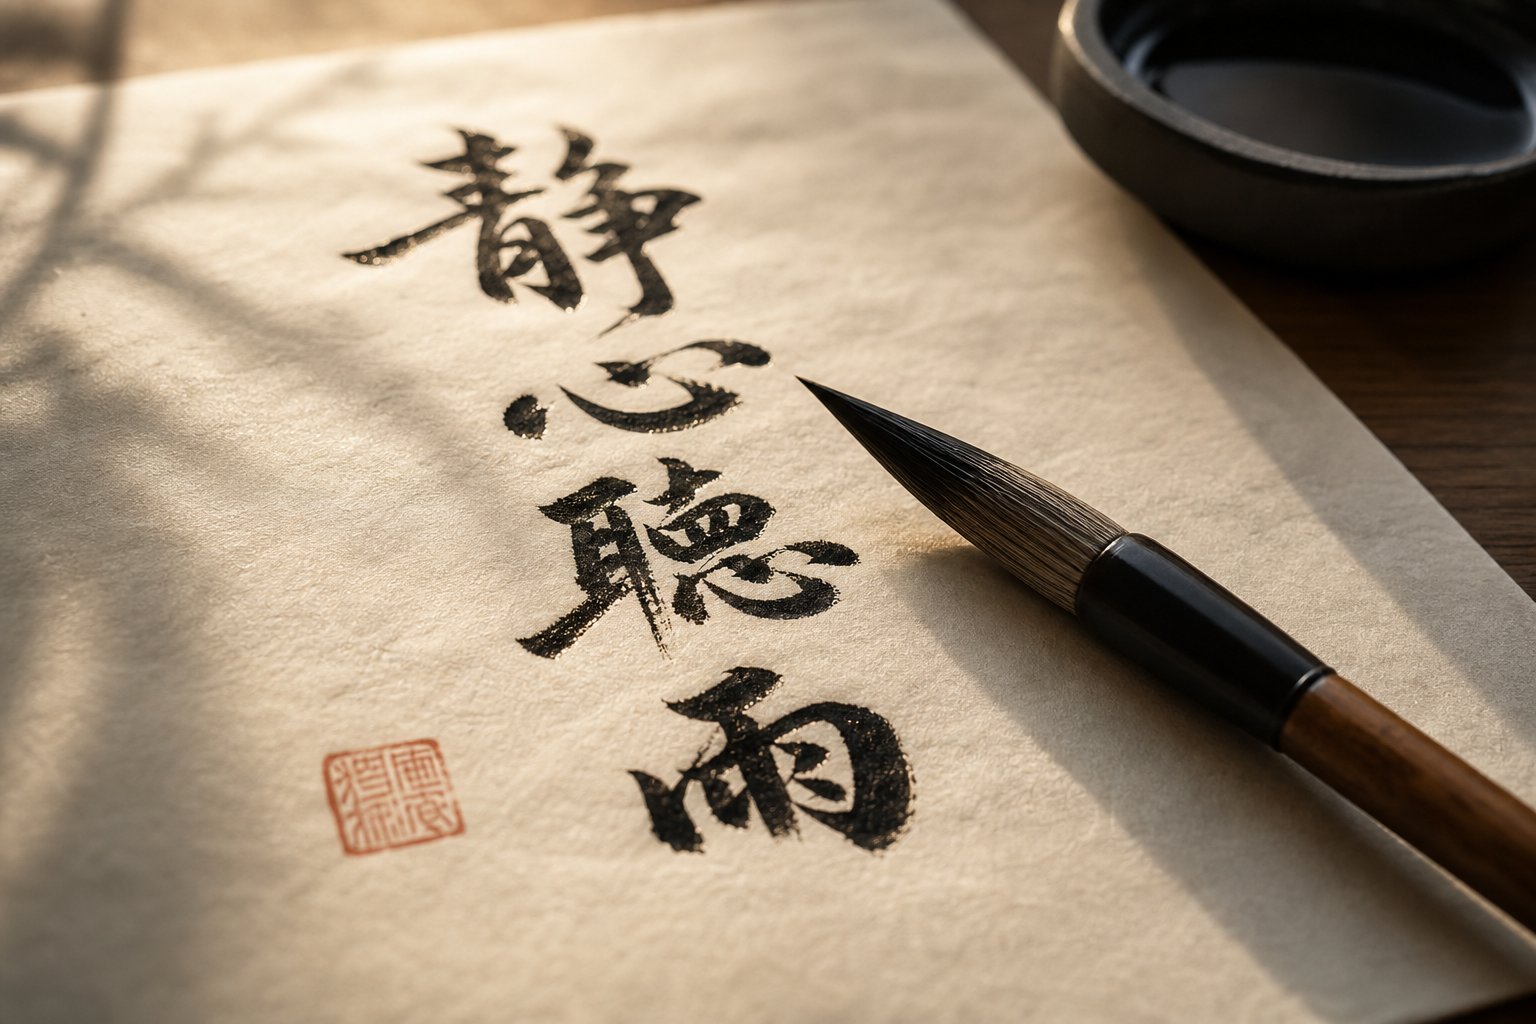 静心聽雨